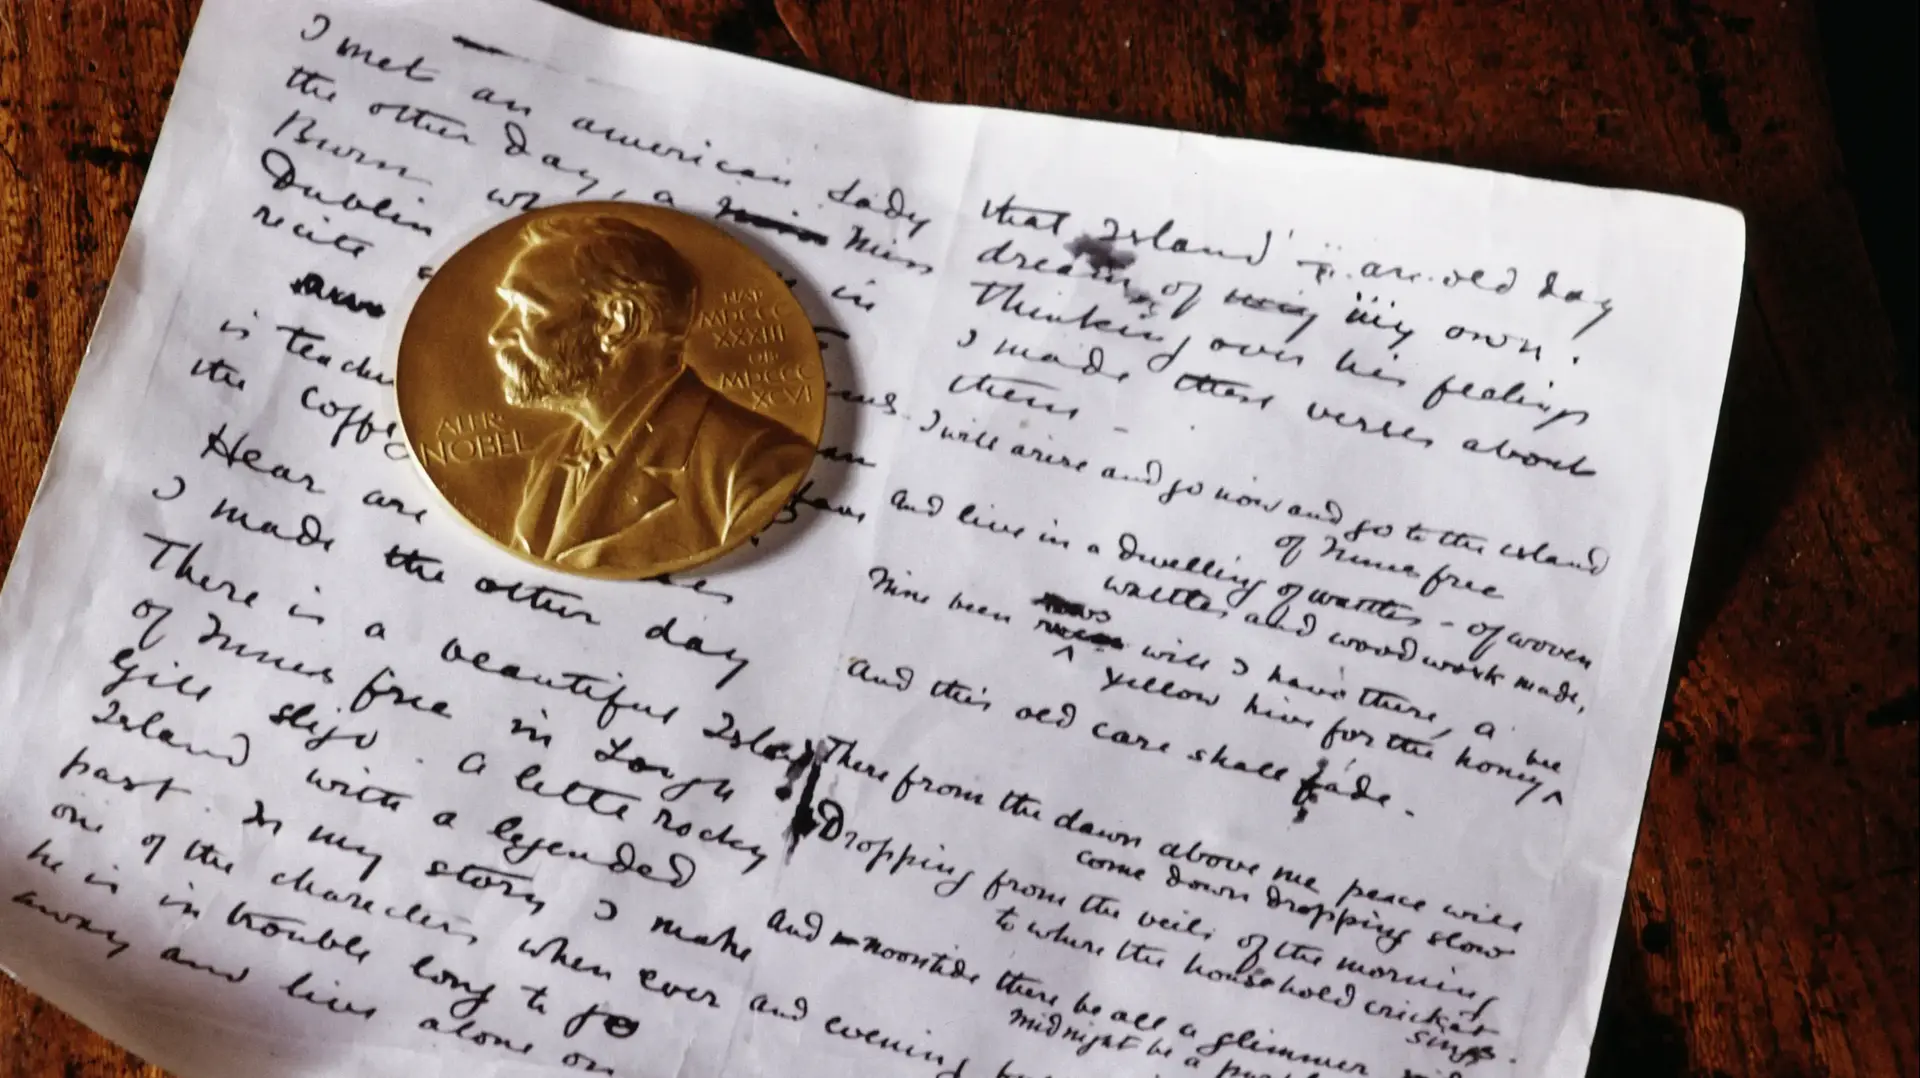 I met an american Lady
the other day, a Miss
Burn
Dublin in
recite
is
the
Hear are
I made the other day
There is a beautiful
of Innis free in Lough
Gill Sligo. A little rocky
Island with a legended
past. In my story I make
one of the characters when ever
he is in trouble long to go
away and live alone on
ALFR.
NOBEL
NAT.
MDCCC
XXXIII
OB.
MDCCC
XCVI
that Island – an old day
dream of my own.
Thinking over his feelings
I made these verses about
them –
I will arise and go now and go to the island
of Innis free
and live in a dwelling of wattles – of woven
wattles and wood work made,
Nine bean rows will I have there, a
yellow hive for the honey bee
And this old care shall fade.
There from the dawn above me peace will
come down dropping slow
Dropping from the veils of the morning
to where the household cricket
sings.
And noontide there be all a glimmer
midnight be a
and evening